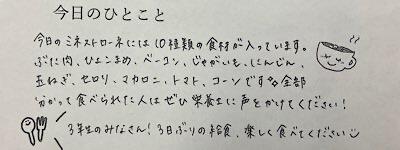 今日のひとこと
今日のミネストローネには10種類の食材が入っています。
ぶた肉、ひよこまめ、ベーコン、じゃがいも、にんじん、
玉ねぎ、セロリ、マカロニ、トマト、コーンです☆全部
分かって食べられた人はぜひ栄養士に声をかけてください!
3年生のみなさん!3日ぶりの給食、楽しく食べてください☺